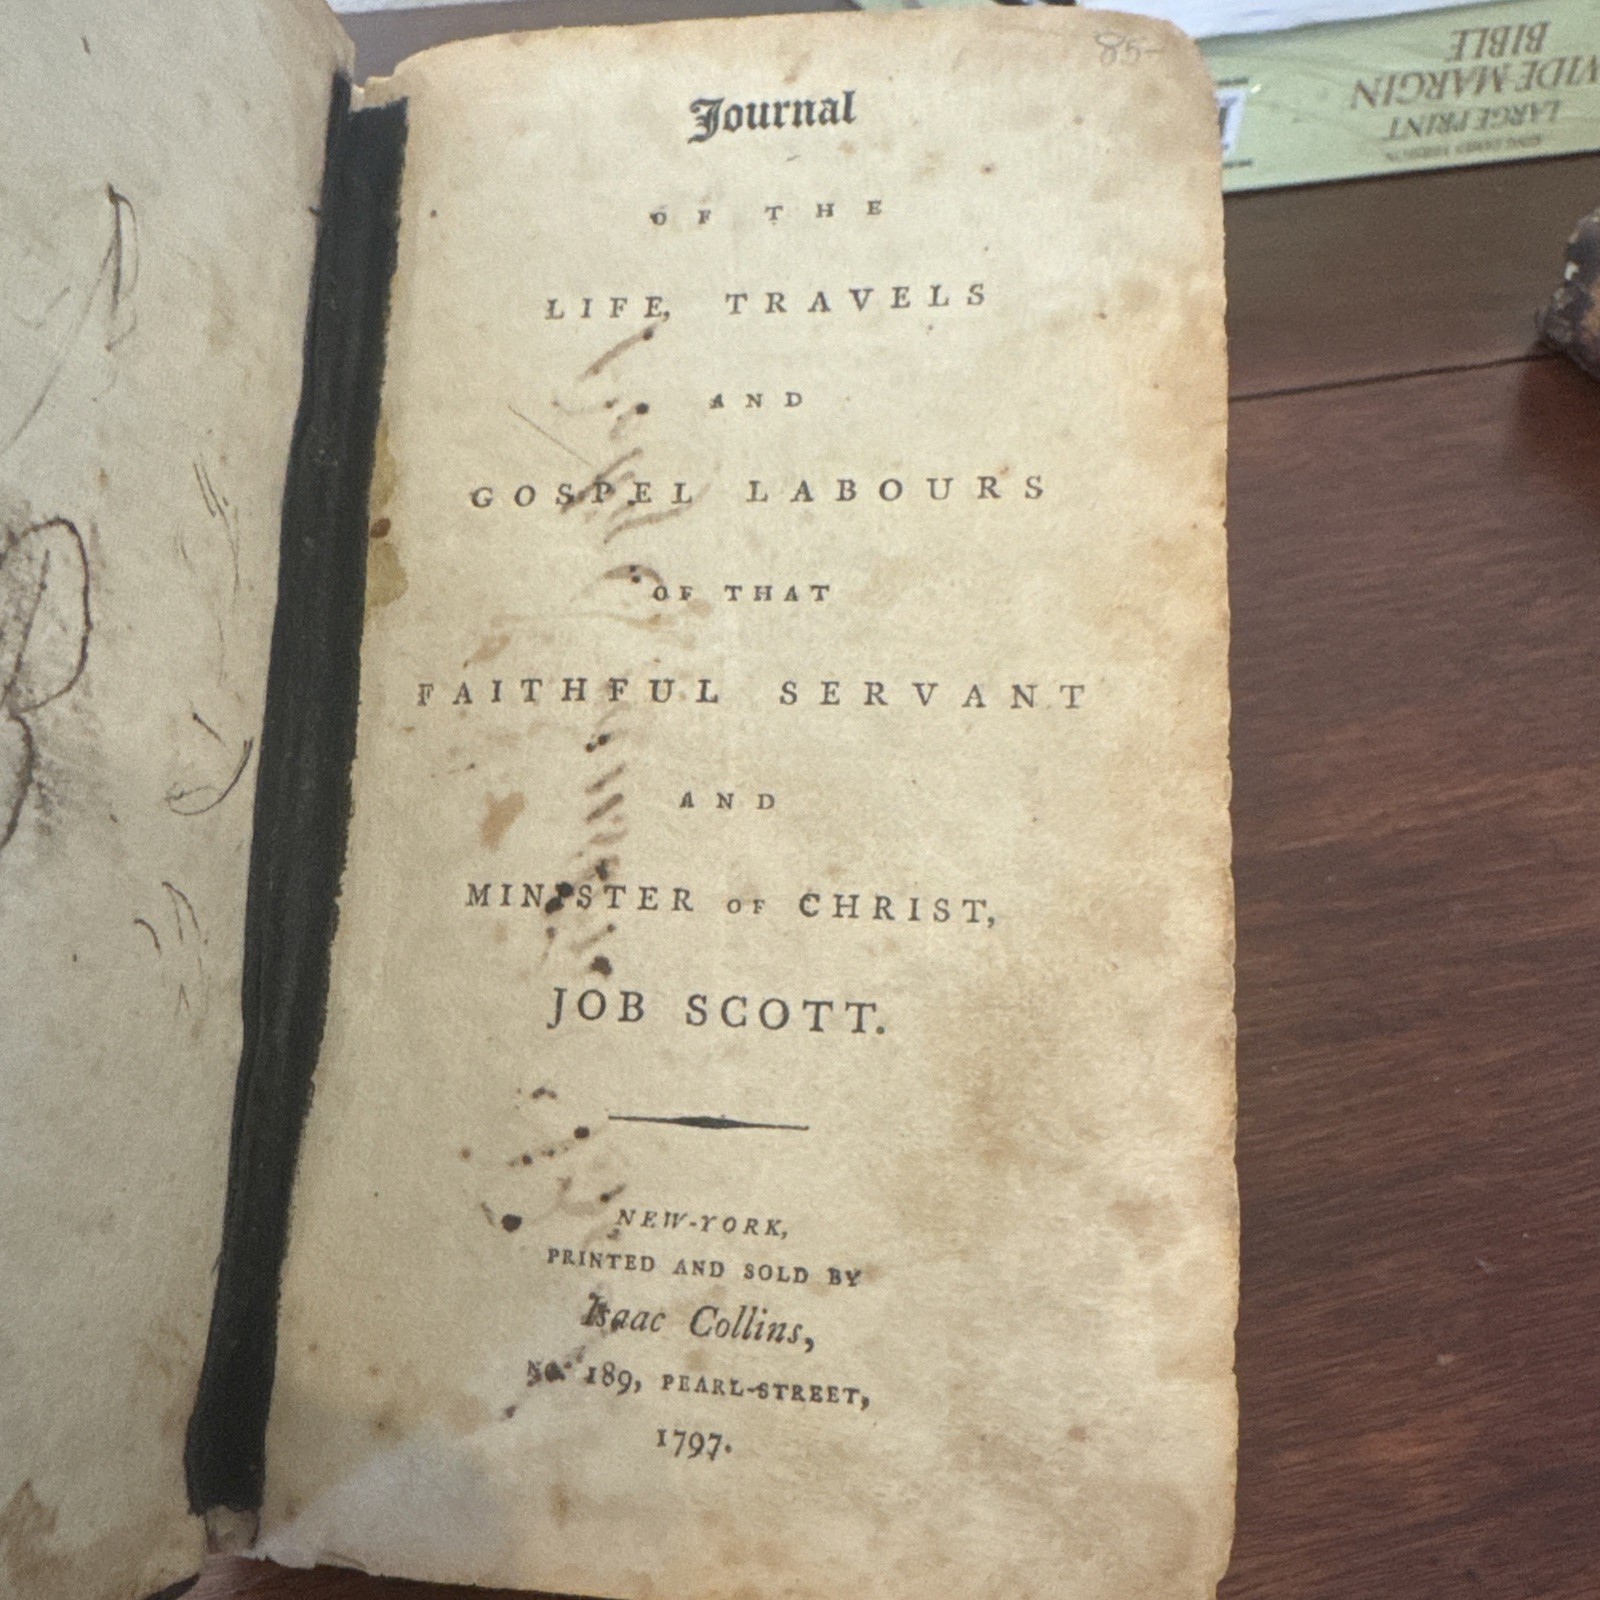 85-
Journal
OF THE
LIFE, TRAVELS
AND
GOSPEL LABOURS
OF THAT
FAITHFUL SERVANT
AND
MINISTER OF CHRIST,
JOB SCOTT.
NEW-YORK,
PRINTED AND SOLD BY
Isaac Collins,
NO. 189, PEARL-STREET,
1797.
KING JAMES VERSION
LARGE PRINT
WIDE MARGIN
BIBLE